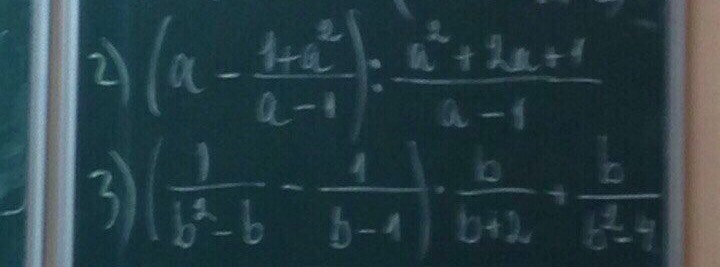 2) (a - \frac{1+a^2}{a-1}) : \frac{a^2+2a+1}{a-1}
3) (\frac{1}{b^2-b} - \frac{1}{b-1}) \cdot \frac{b}{b+2} + \frac{b}{b^2-4}